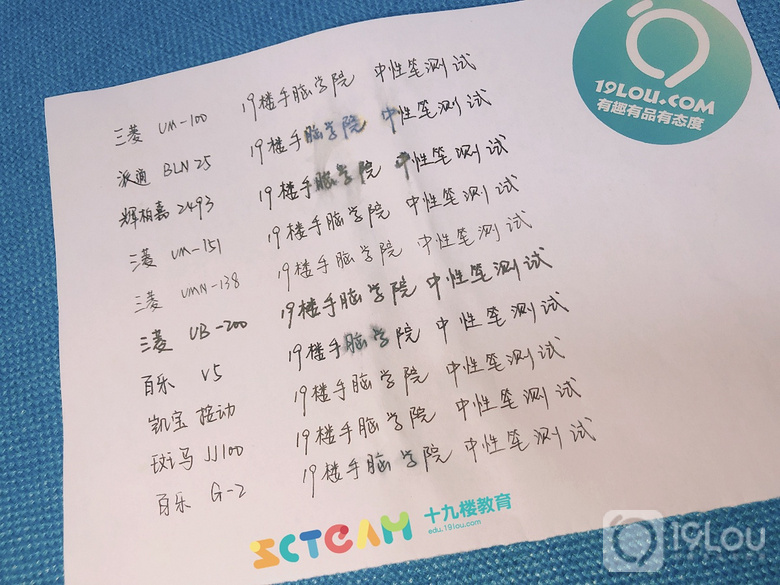 19LOU.COM
有趣有品有态度
三菱 UM-100 19楼手脑学院 中性笔测试
派通 BLN25 19楼手脑学院 中性笔测试
辉柏嘉 2493 19楼手脑学院 中性笔测试
三菱 UM-151 19楼手脑学院 中性笔测试
三菱 UMN-138 19楼手脑学院 中性笔测试
三菱 UB-200 19楼手脑学院 中性笔测试
百乐 V5 19楼手脑学院 中性笔测试
凯宝 按动 19楼手脑学院 中性笔测试
斑马 JJ100 19楼手脑学院 中性笔测试
百乐 G-2 19楼手脑学院 中性笔测试
SCTEAM 十九楼教育
edu.19lou.com
19Lou